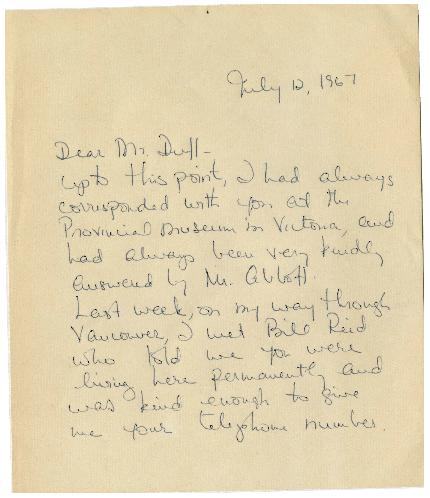 July 12, 1967
Dear Mr. Duff-
upto this point, I had always
corresponded with you at the
Provincial Museum in Victoria, and
had always been very kindly
answered by Mr. Abbott.
Last week, on my way through
Vancouver, I met Bill Reid
who told me you were
living here permanently and
was kind enough to give
me your telephone number.